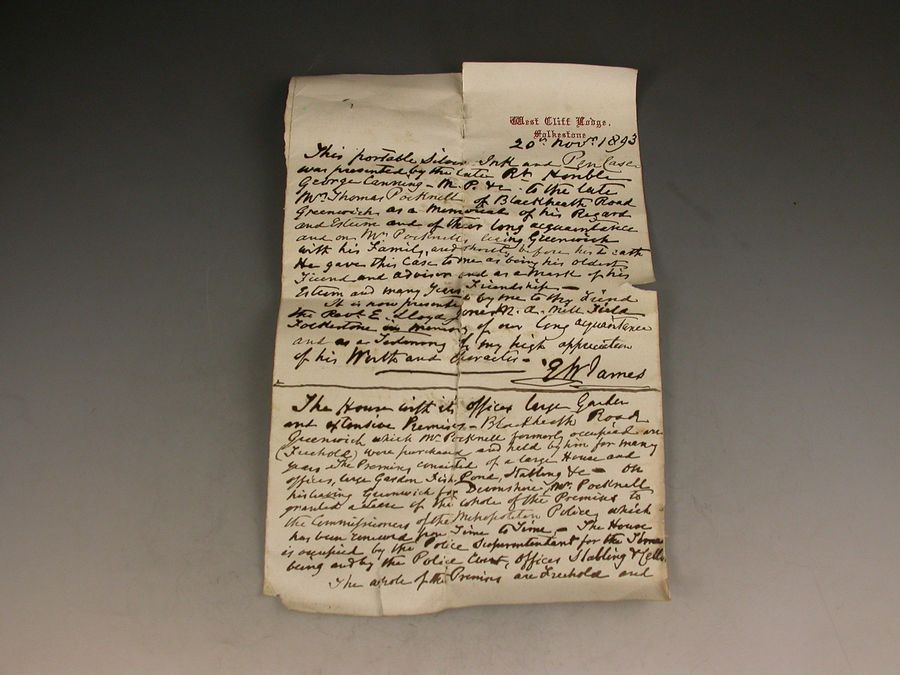 West Cliff Lodge.
Folkestone
20th Novr. 1893
This portable Silver Ink and Pen Case
was presented by the late Rt. Honble
George Canning - M.P. &c - to the late
Mr. Thomas Pocknell of Blackheath Road
Greenwich as a Memorial of his Regard
and Esteem and of their long acquaintance
and on Mr. Pocknell leaving Greenwich
with his Family, and shortly before his Death
He gave this Case to me as being his oldest
Friend and advisor and as a Mark of his
Esteem and many Years Friendship -
It is now presented by me to my Friend
the Revd. E. Lloyd Jones M.A. Mill Field
Folkestone in Memory of our long acquaintance
and as a Testimony of my high appreciation
of his Worth and Character -
E W James
The House with its offices large Garden
and extensive Premises - Blackheath Road
Greenwich which Mr. Pocknell formerly occupied are
(Freehold) were purchased and held by him for many
years The Premises consisted of a large House and
offices, large Garden Fish Pond, Stabling &c - On
his leaving Greenwich for Devonshire, Mr. Pocknell
granted a Lease of the whole of the Premises to
the Commissioners of the Metropolitan Police, which
has been renewed from Time to Time - The House
is occupied by the Police Superintendant for the Time
being and by the Police Court, offices Stabling & Cells.
The whole of the Premises are Freehold and